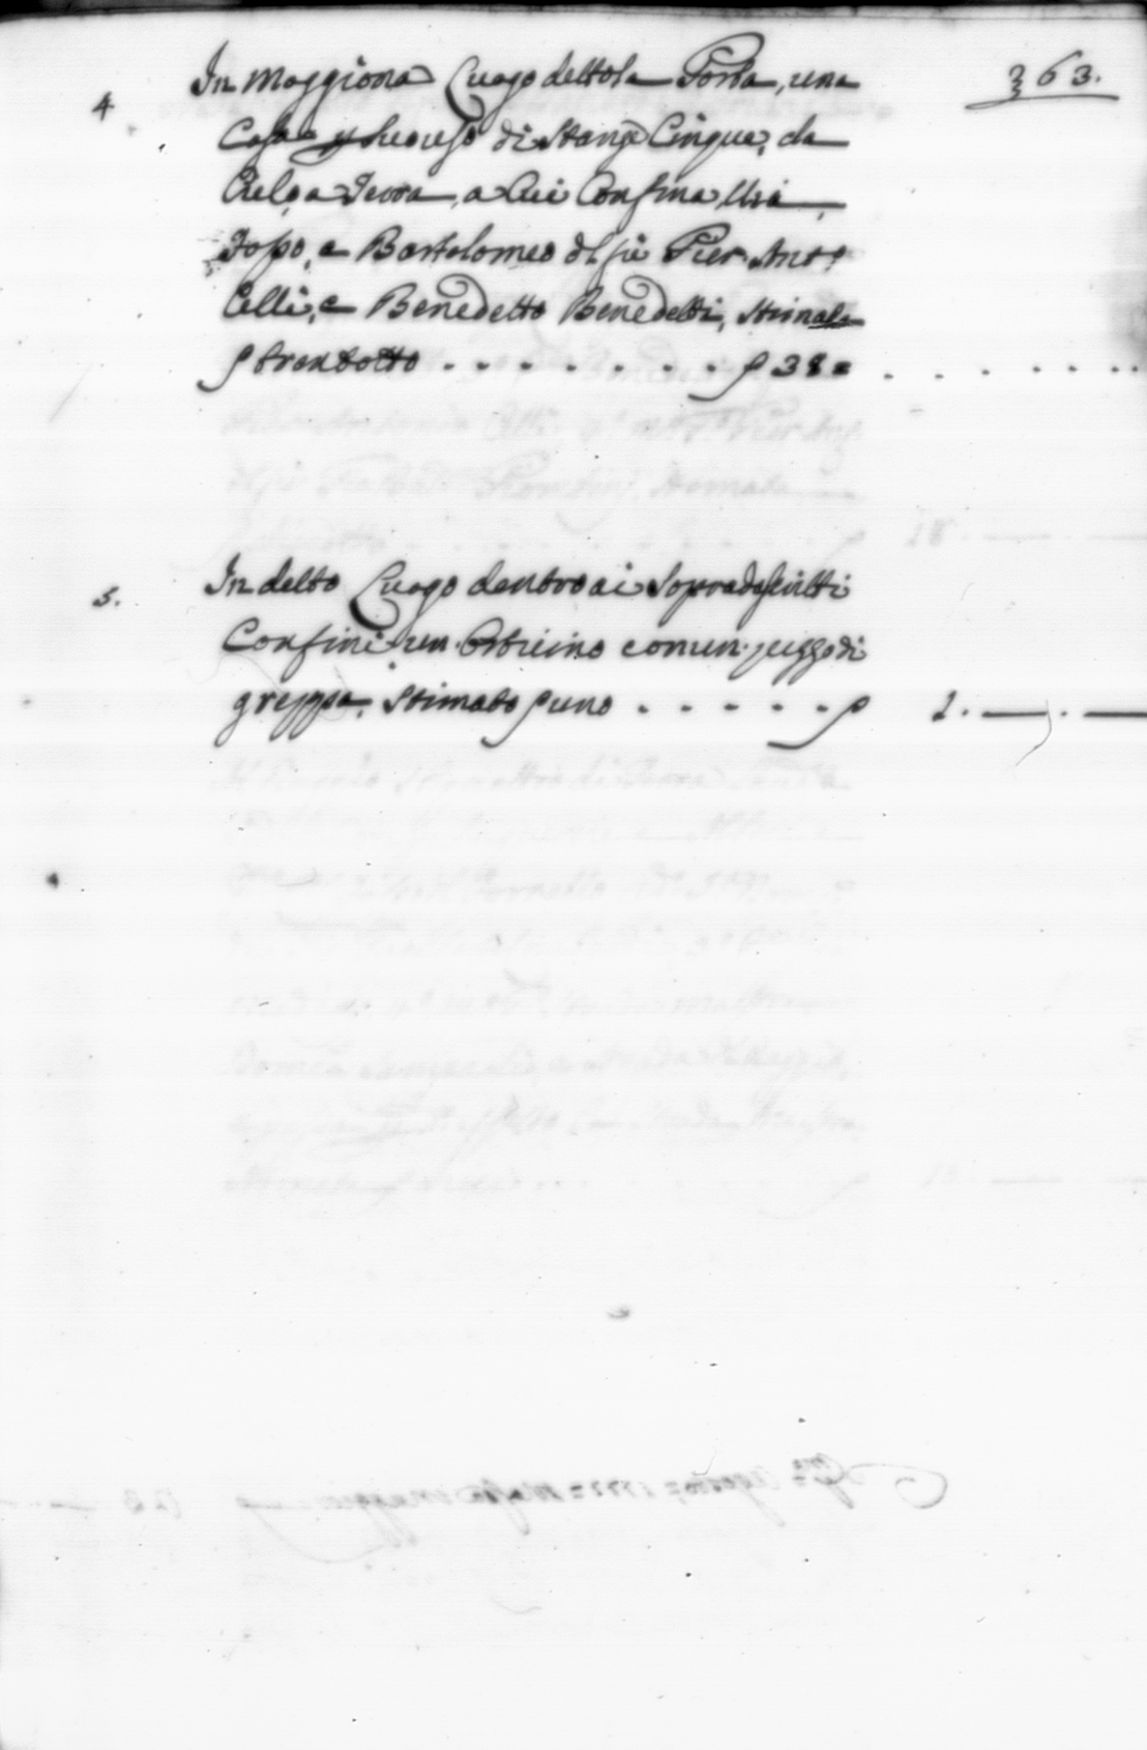 363.
4 In Maggiona Luogo detto la Porta, una
Casa p suo uso di Stanze Cinque, da
Cielo a Terra, a Cui Confina, Via
Fosso, e Bartolomeo dl fù Pier Ant:
Celli, e Benedetto Benedetti, Stimata
p trentotto . . . . . . . . p 38 = . . . . . .
5. In detto Luogo dentro ai Sopradescritti
Confini un Orticino con un pezzo di
greppa, Stimato p uno . . . . . p 1. — . —